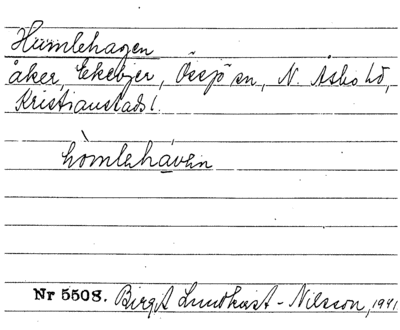 Humlehagen
åker, Ekebjer, Össjö sn, N. Åsbo hd,
Kristianstads l.
hòmlehávèn
Nr 5508. Birgit Lundkvist-Nilsson, 1941